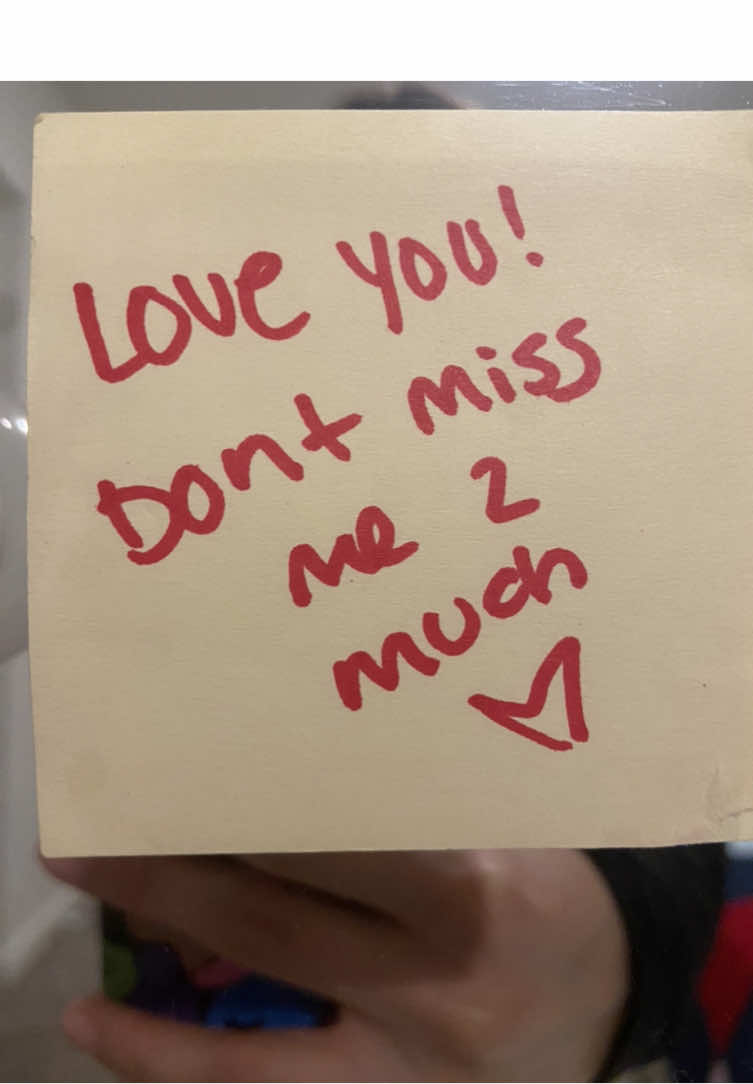 Love you!
Dont miss
me 2
much